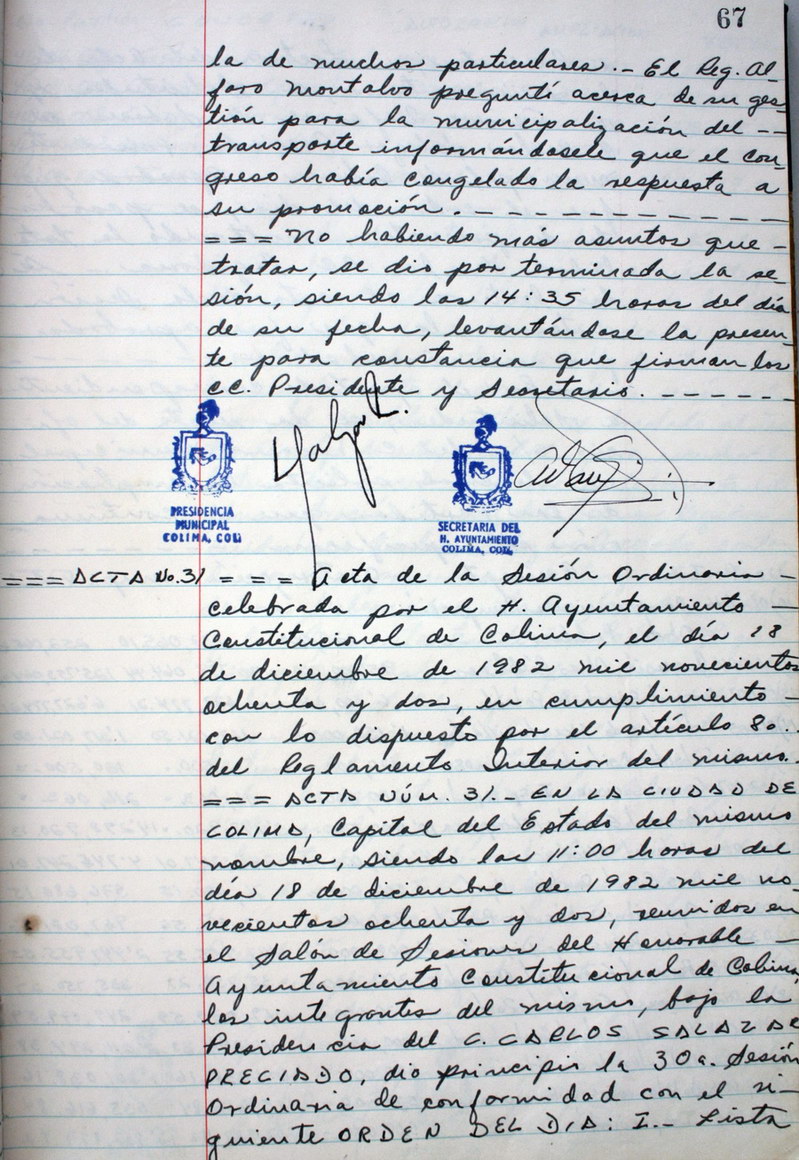 67
la de muchos particulares.- El Reg. Al
faro Montalvo preguntó acerca de su ges
tión para la municipalización del --
transporte informándosele que el con
greso había congelado la respuesta a
su promoción. - - - - - - - - - - - -
=== No habiendo más asuntos que -
tratar, se dio por terminada la se-
sión, siendo las 14:35 horas del día
de su fecha, levantándose la presen-
te para constancia que firman los
CC. Presidente y Secretario. - - - - - -
PRESIDENCIA
MUNICIPAL
COLIMA, COL.
SECRETARIA DEL
H. AYUNTAMIENTO
COLIMA, COL.
=== ACTA No. 31 === Acta de la Sesión Ordinaria -
celebrada por el H. Ayuntamiento -
Constitucional de Colima, el día 18
de diciembre de 1982 mil novecientos
ochenta y dos, en cumplimiento -
con lo dispuesto por el artículo 8o.
del Reglamento Interior del mismo.
=== ACTA NÚM. 31.- EN LA CIUDAD DE
COLIMA, Capital del Estado del mismo
nombre, siendo las 11:00 horas del
día 18 de diciembre de 1982 mil no-
vecientos ochenta y dos, reunidos en
el Salón de Sesiones del Honorable -
Ayuntamiento Constitucional de Colima,
los integrantes del mismo, bajo la
Presidencia del C. CARLOS SALAZAR
PRECIADO, dio principio la 30a. Sesión
Ordinaria de conformidad con el si-
guiente ORDEN DEL DIA: I.- Lista